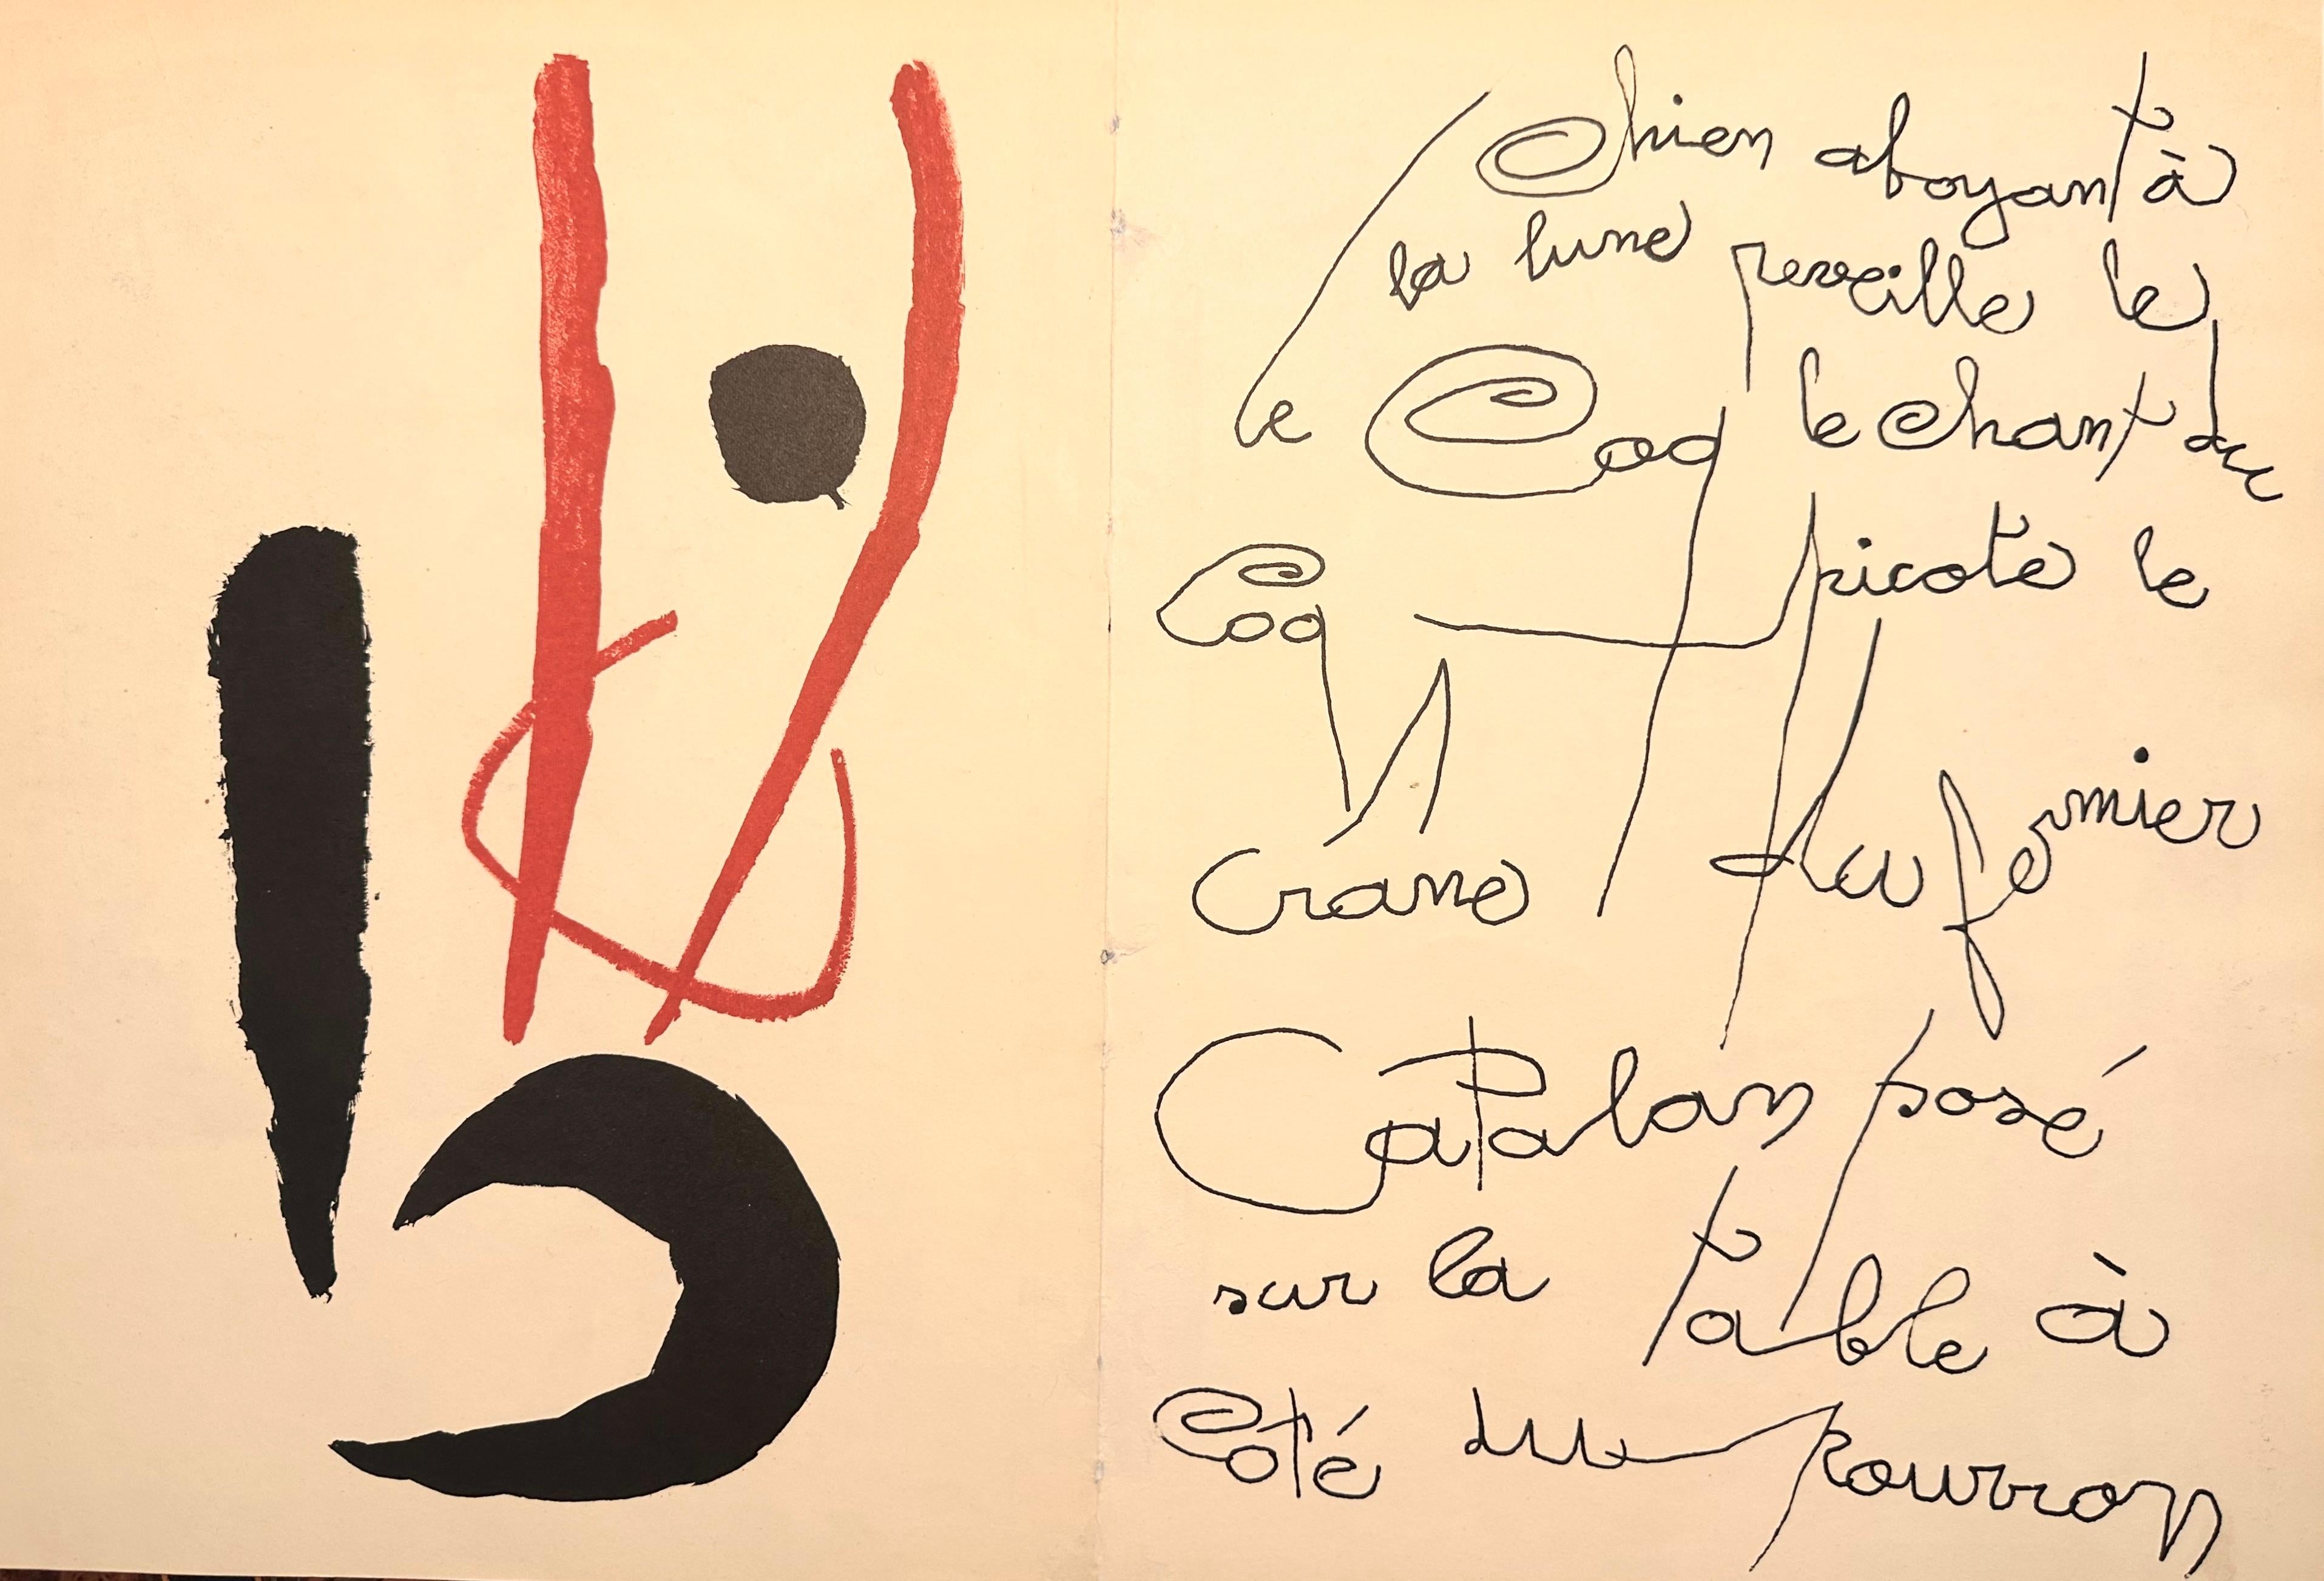 le Chien aboyant à
la lune reveille le
Coq le chant du
Coq picote le
Crane du fermier
Catalan posé
sur la table à
Coté du pourron